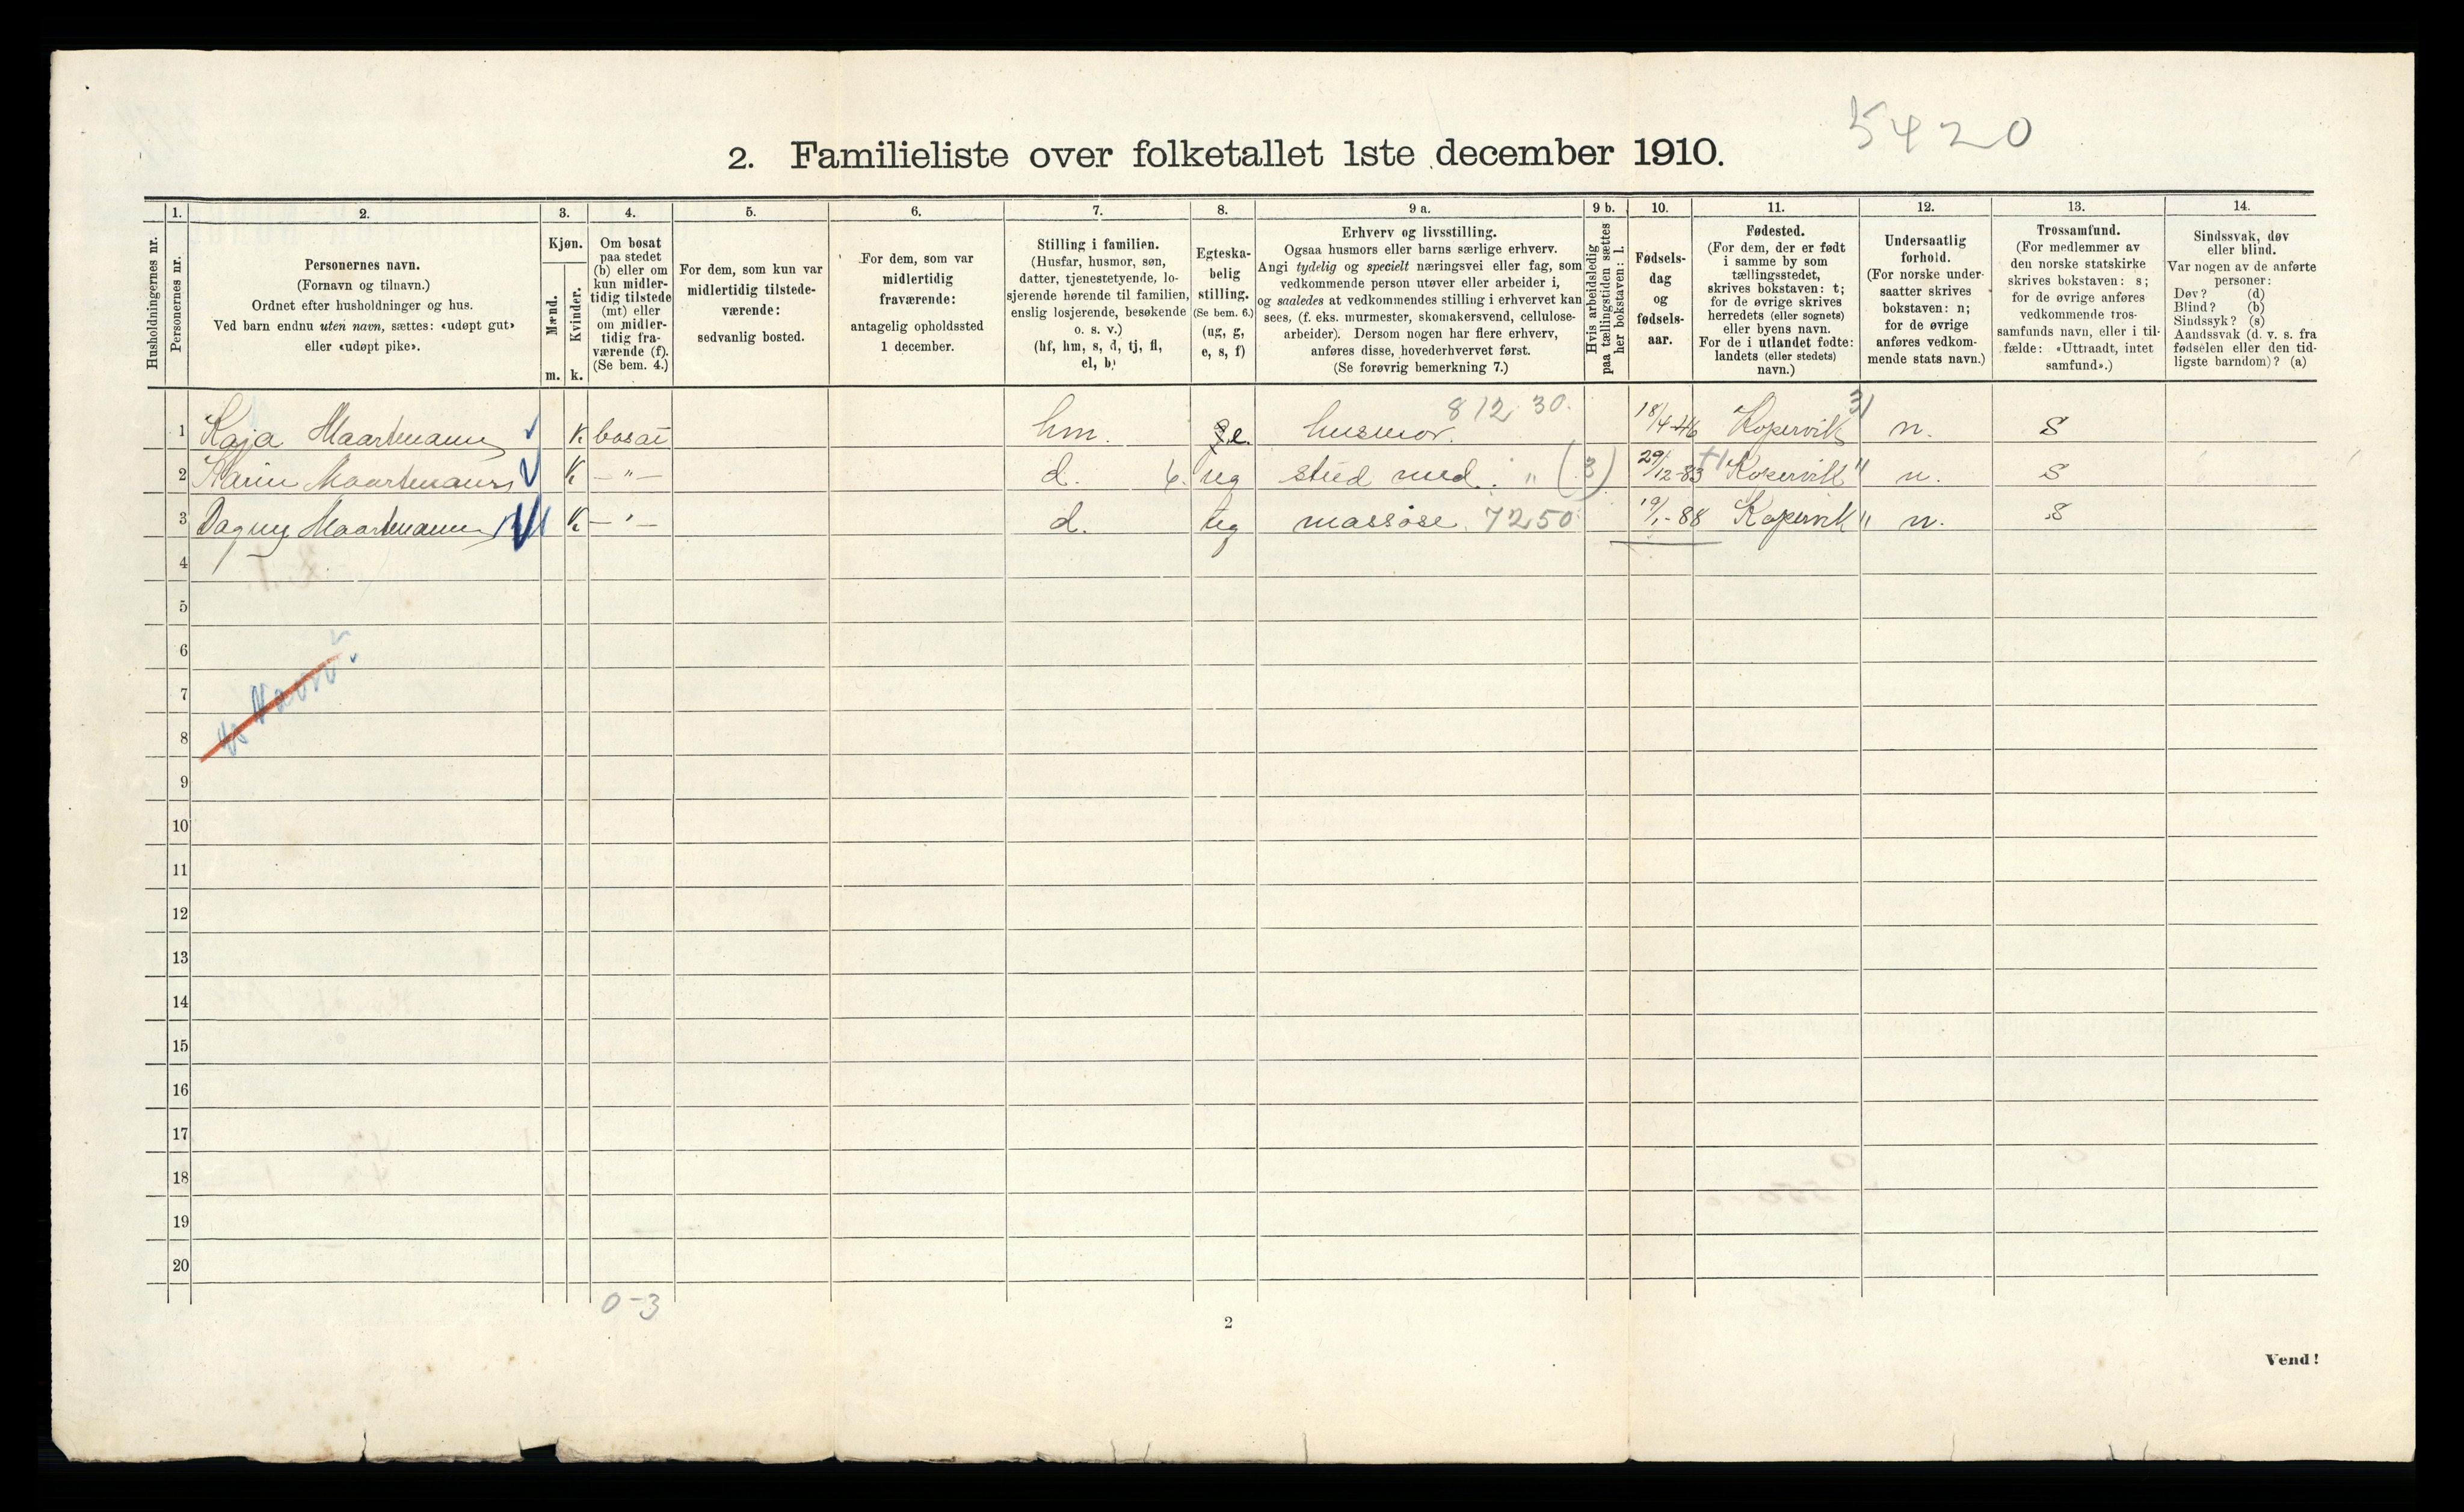 5420
2. Familieliste over folketallet 1ste december 1910.
1. 2. 3. 4. 5. 6. 7. 8. 9 a. 9 b. 10. 11. 12. 13. 14.
Husholdningernes nr.
Personernes nr.
Personernes navn.
(Fornavn og tilnavn.)
Ordnet efter husholdninger og hus.
Ved barn endnu uten navn, sættes: «udøpt gut»
eller «udøpt pike».
Kjøn.
Mænd.
m.
Kvinder.
k.
Om bosat
paa stedet
(b) eller om
kun midler-
tidig tilstede
(mt) eller
om midler-
tidig fra-
værende (f).
(Se bem. 4.)
For dem, som kun var
midlertidig tilstede-
værende:
sedvanlig bosted.
For dem, som var
midlertidig
fraværende:
antagelig opholdssted
1 december.
Stilling i familien.
(Husfar, husmor, søn,
datter, tjenestetyende, lo-
sjerende hørende til familien,
enslig losjerende, besøkende
o. s. v.)
(hf, hm, s, d, tj, fl,
el, b)
Egteska-
belig
stilling.
(Se bem. 6.)
(ug, g,
e, s, f)
Erhverv og livsstilling.
Ogsaa husmors eller barns særlige erhverv.
Angi tydelig og specielt næringsvei eller fag, som
vedkommende person utøver eller arbeider i,
og saaledes at vedkommendes stilling i erhvervet kan
sees, (f. eks. murmester, skomakersvend, cellulose-
arbeider). Dersom nogen har flere erhverv,
anføres disse, hovederhvervet først.
(Se forøvrig bemerkning 7.)
Hvis arbeidsledig
paa tællingstiden sættes
her bokstaven: l.
Fødsels-
dag
og
fødsels-
aar.
Fødested.
(For dem, der er født
i samme by som
tællingsstedet,
skrives bokstaven: t;
for de øvrige skrives
herredets (eller sognets)
eller byens navn.
For de i utlandet fødte:
landets (eller stedets)
navn.)
Undersaatlig
forhold.
(For norske under-
saatter skrives
bokstaven: n;
for de øvrige
anføres vedkom-
mende stats navn.)
Trossamfund.
(For medlemmer av
den norske statskirke
skrives bokstaven: s;
for de øvrige anføres
vedkommende tros-
samfunds navn, eller i til-
fælde: «Uttraadt, intet
samfund».)
Sindssvak, døv
eller blind.
Var nogen av de anførte
personer:
Døv? (d)
Blind? (b)
Sindssyk? (s)
Aandssvak (d. v. s. fra
fødselen eller den tid-
ligste barndom)? (a)
1 Kaja Maartmann K bosat hm. e. husmor. 812 30. 18/4-46 Kopervik 31 n. S
2 Karin Maartmann K — " — d. 6. ug stud med. " (3) 29/12-83 Kopervik " n. S
3 Dagny Maartmann K — " — d. ug massøse. 7250 19/1-88 Kopervik " n. S
4
5
6
7
8
9
10
11
12
13
14
15
16
17
18
19
20
0-3
2
Vend!